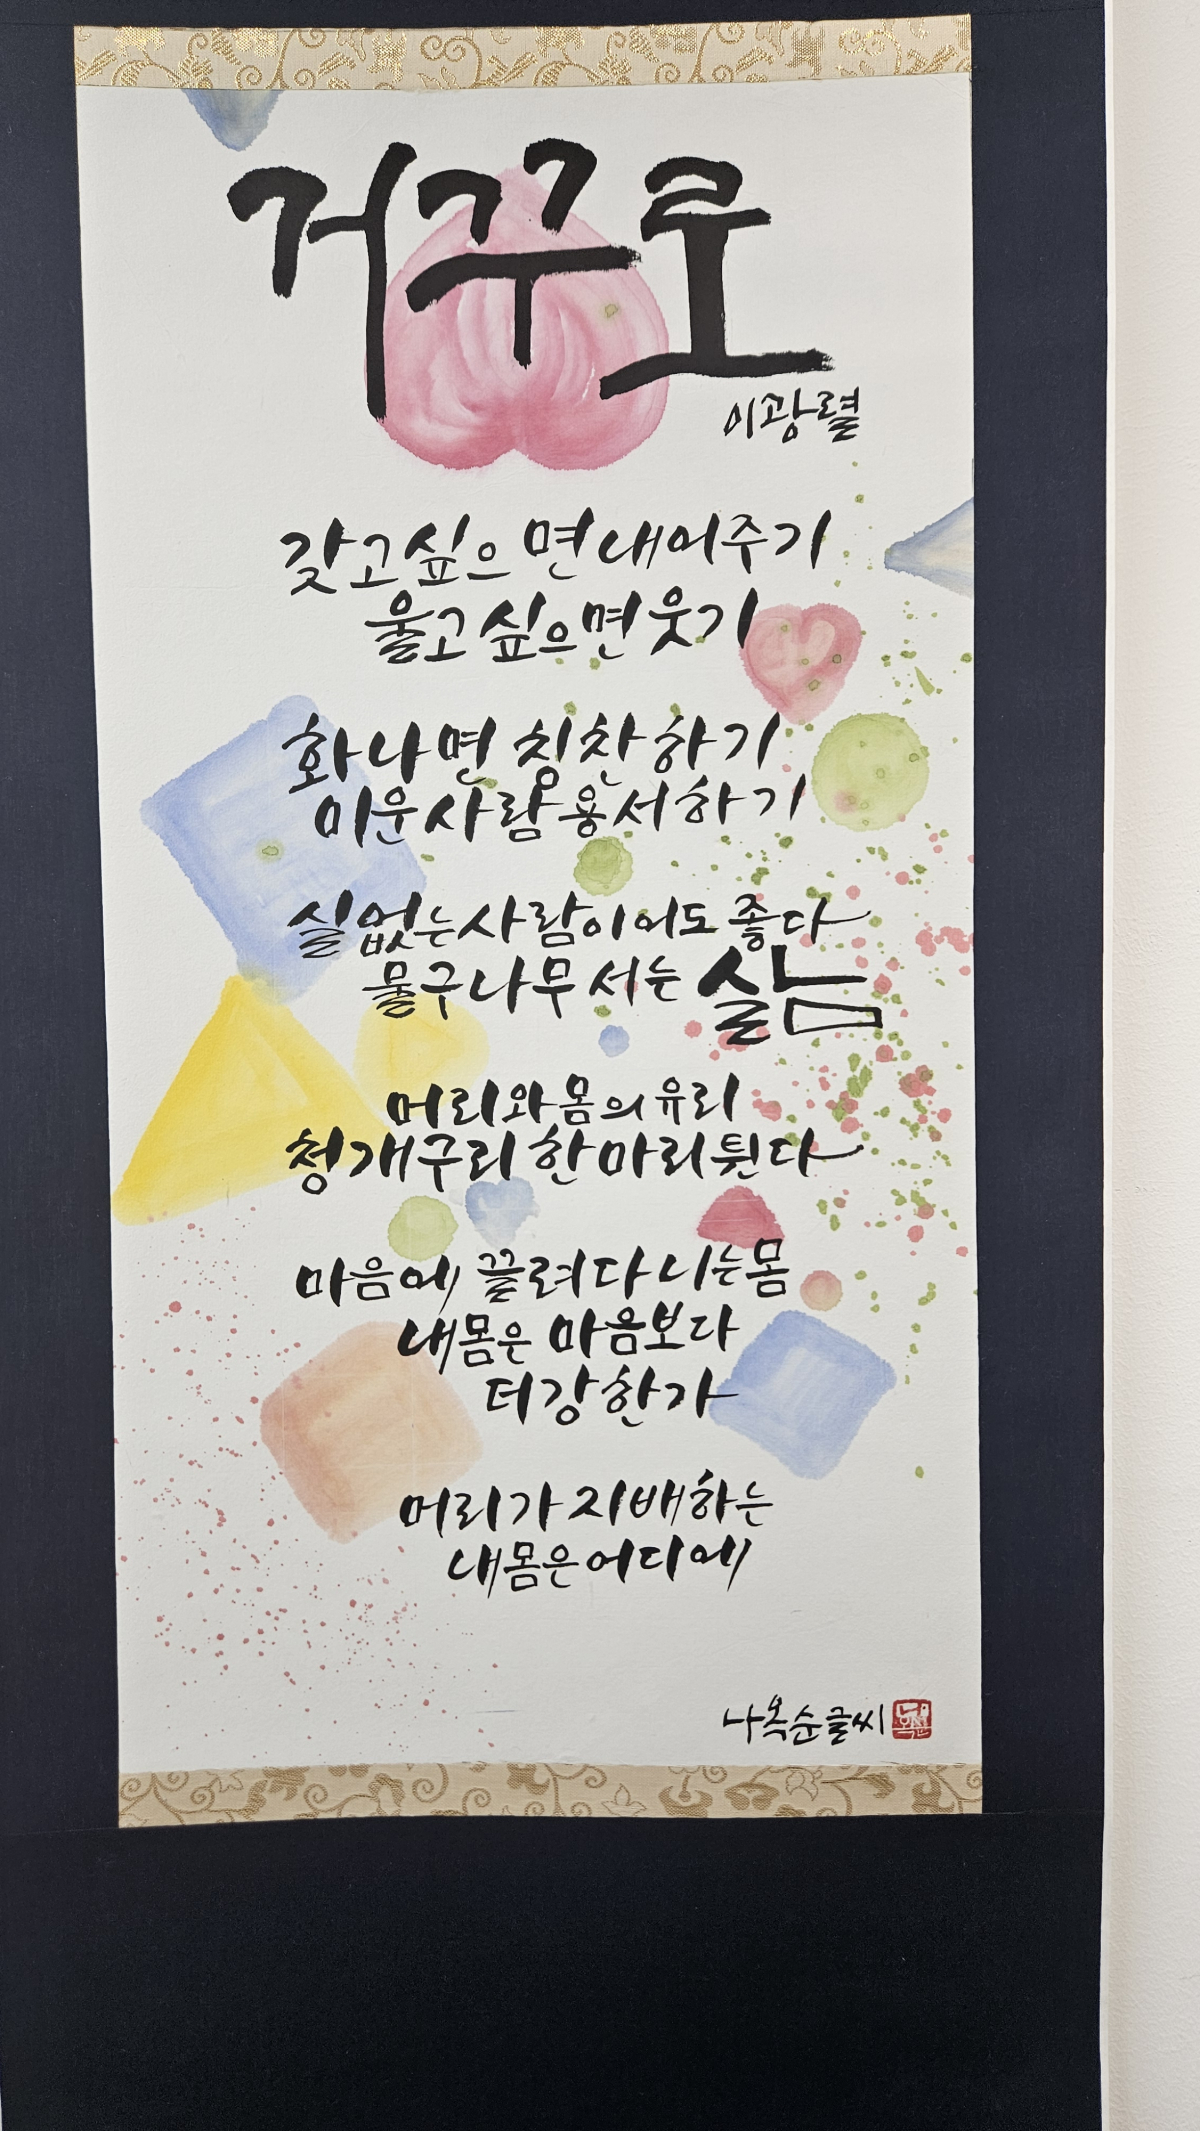 거꾸로
이광렬
갖고싶으면 내어주기
울고싶으면 웃기
화나면 칭찬하기
미운 사람 용서하기
실없는 사람이어도 좋다
물구나무 서는 삶
머리와 몸의 유리
청개구리 한마리 뛴다
마음에 끌려다니는 몸
내몸은 마음보다
더 강한가
머리가 지배하는
내몸은 어디에
나옥순 글씨